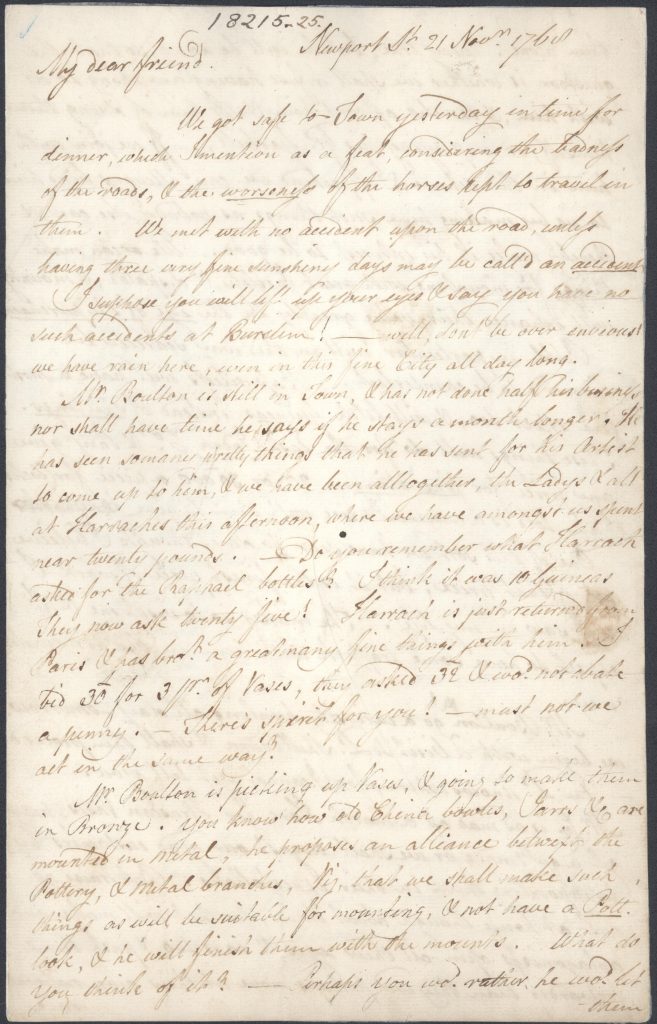 18215-25.
Newport St. 21 Novr. 1768
My dear friend.
We got safe to Town yesterday in time for
dinner, which I mention as a feat, considering the badness
of the roads, & the worseness of the horses kept to travel in
them. We met with no accident upon the road, unless
having three very fine sunshiny days may be call'd an accident
I suppose you will lift up your eyes & say you have no
such accidents at Burslem! — well, don't be over envious!
we have rain here, even in this fine City all day long.
Mr. Boulton is still in Town, & has not done half his business
nor shall have time he says if he stays a month longer. He
has seen so many pretty things that he has sent for his Artist
to come up to him, & we have been alltogether, the Ladys & all
at Harraches this afternoon, where we have amongst us spent
near twenty pounds. — Do you remember what Harrach
asked for the Raphael bottles? I think it was 10 Guineas
They now ask twenty five! Harrach is just return'd from
Paris & has brot. a great many fine things with him. I
bid 30£ for 3 pr. of Vases, they asked 32 & wod. not abate
a penny. — There's spirit for you! — must not we
act in the same way?
Mr. Boulton is picking up Vases, & going to make them
in Bronze. You know how old China bowles, Jarrs &c, are
mounted in metal, he proposes an alliance betwixt the
Pottery, & Metal branches, Viz, that we shall make such
things as will be suitable for mounting, & not have a Pott
look, & he will finish them with the mounts. What do
you think of it? — Perhaps you wod. rather he wod. let
them